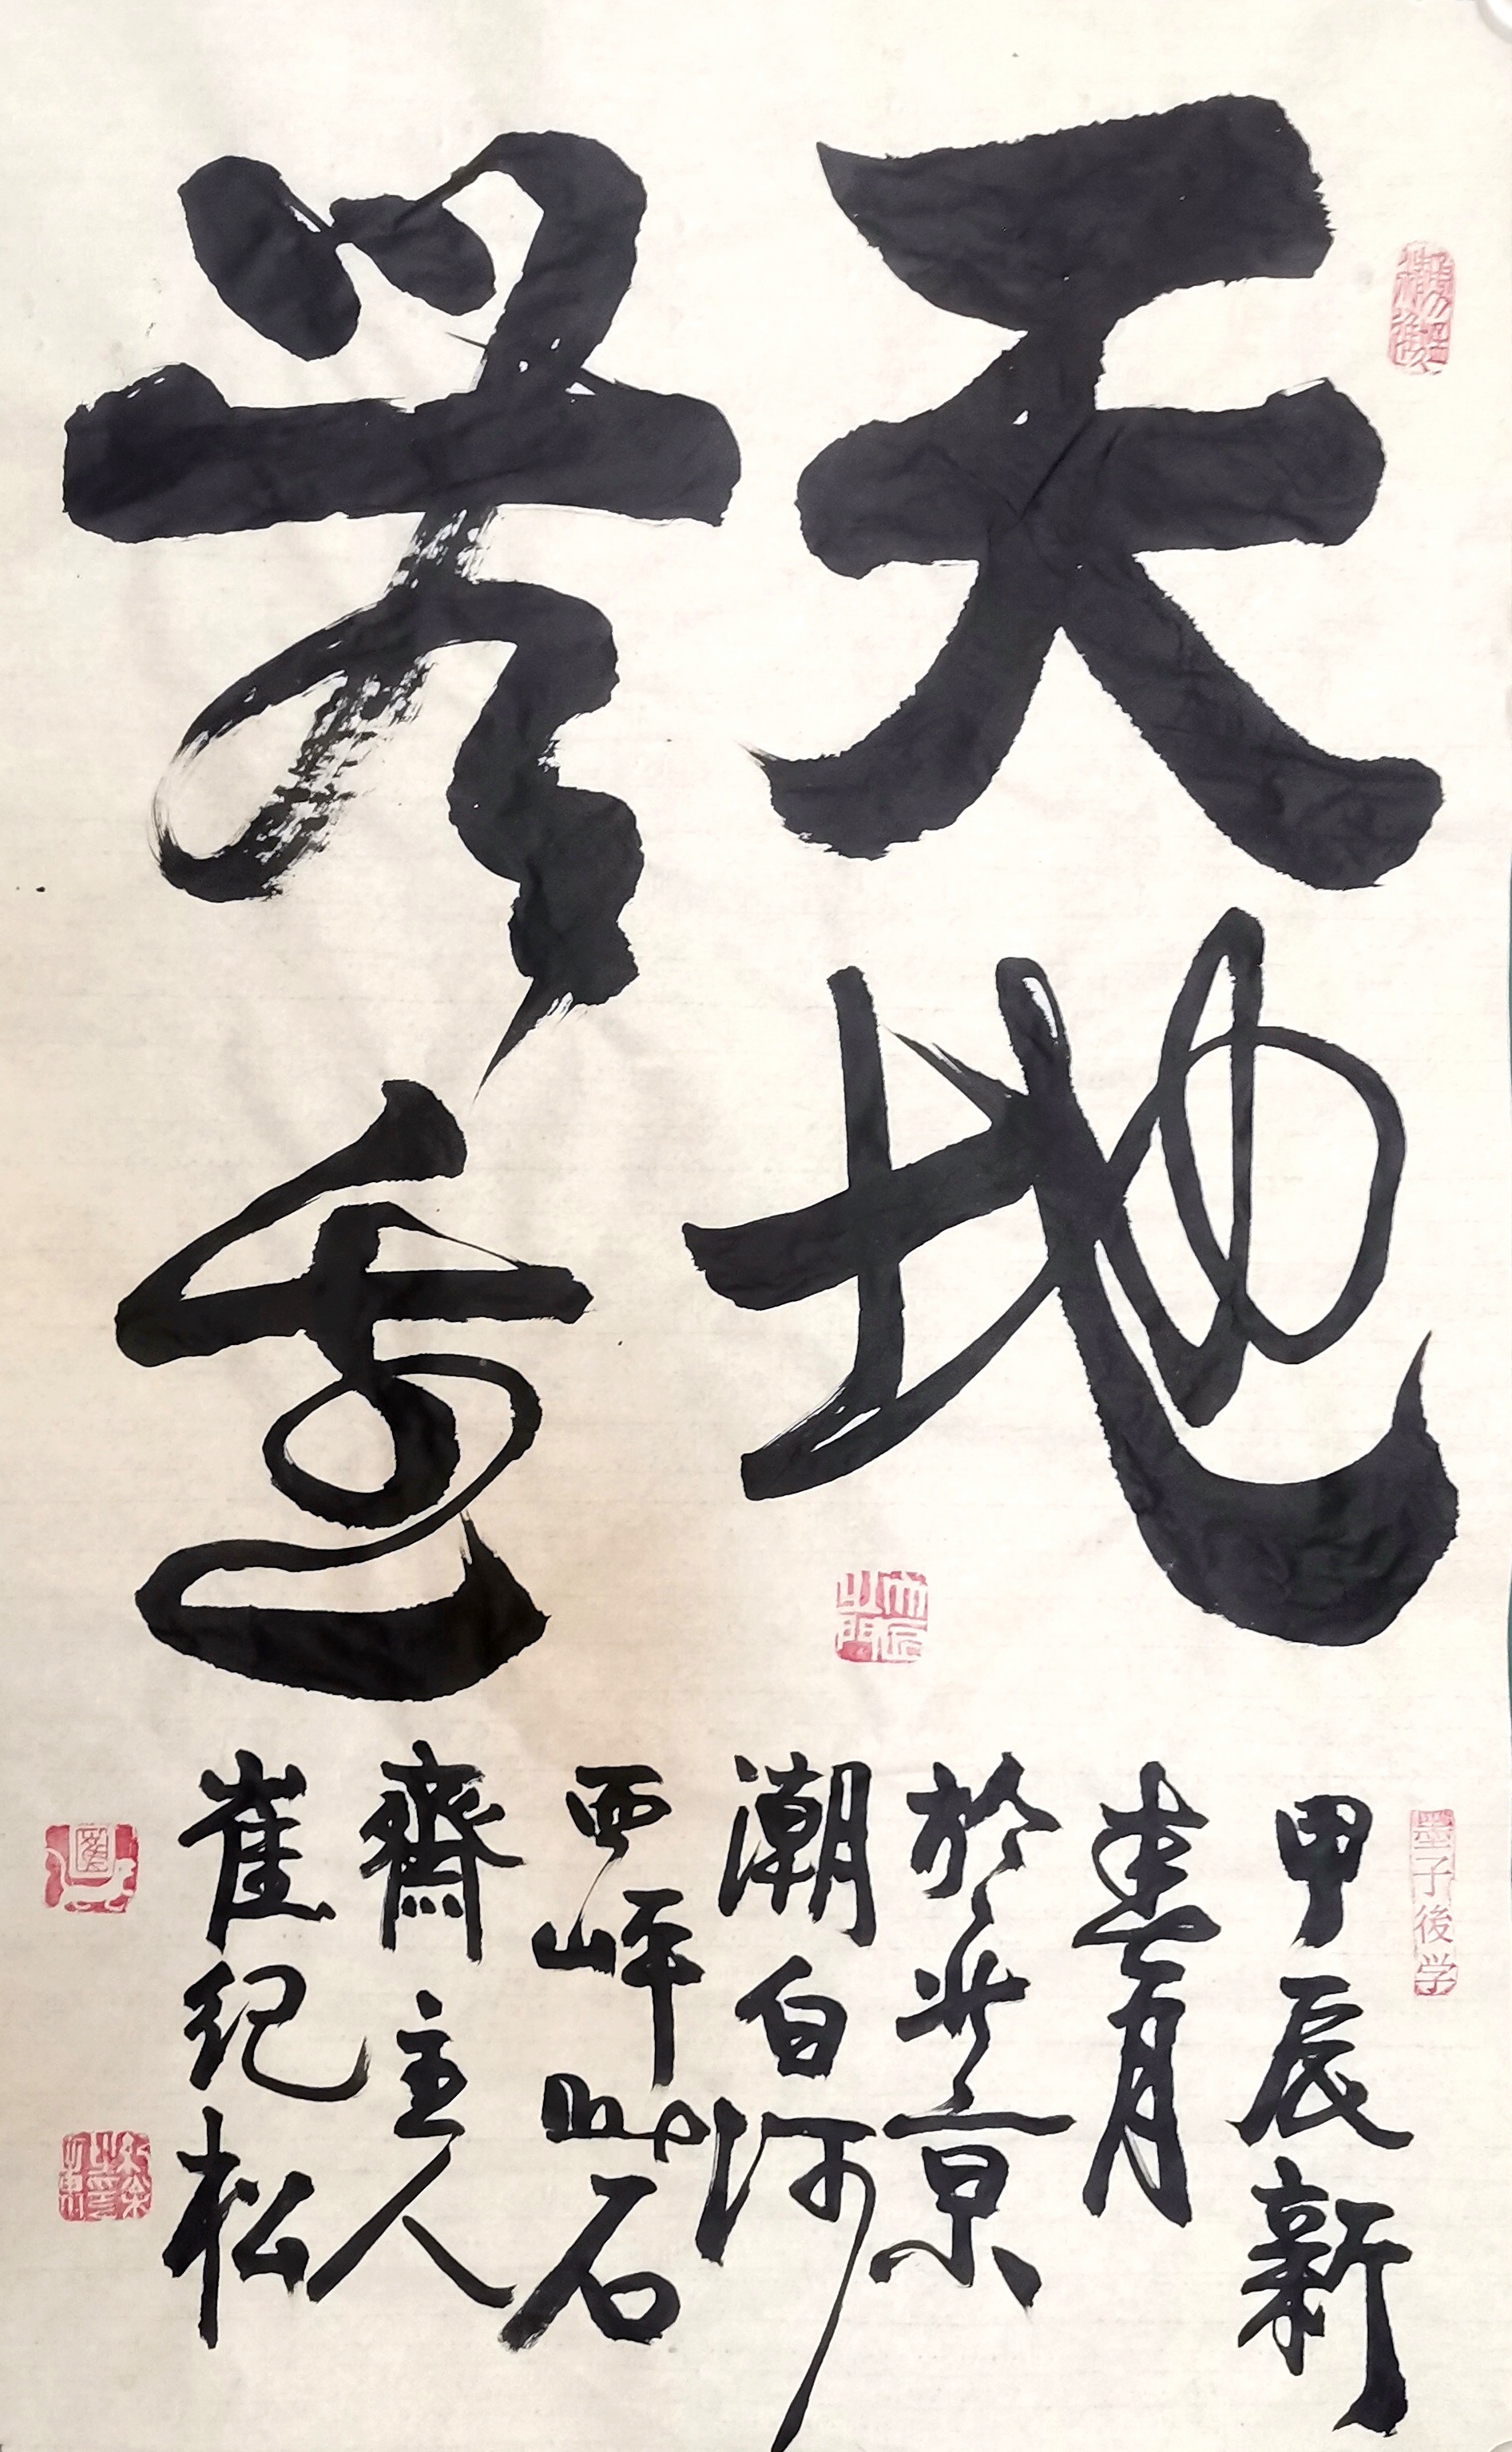 天地
甲辰新
春月
於北京
潮白河
西岸 石
齋主人
崔纪松
墨子後学
大匠之門